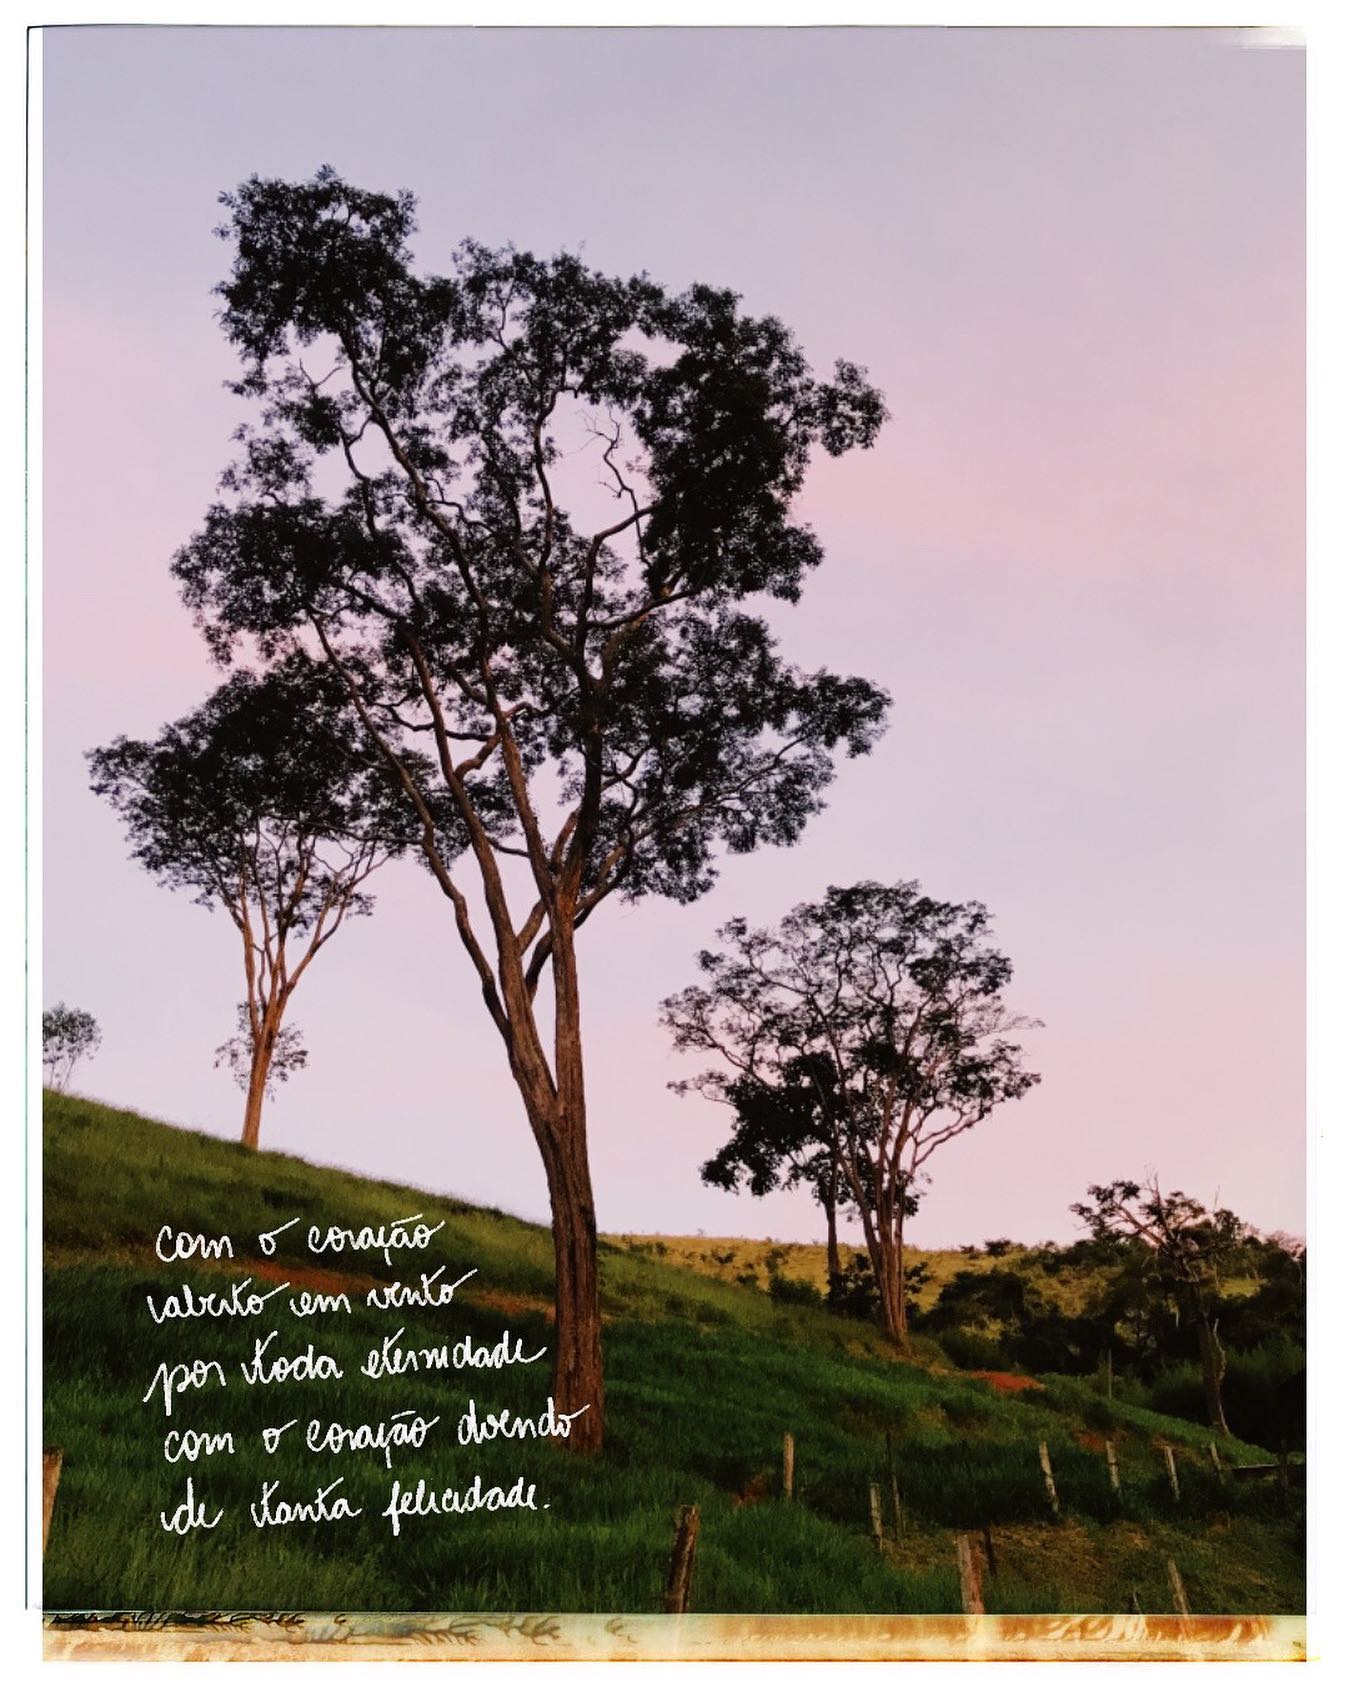 com o coração
aberto em vento
por toda eternidade
com o coração doendo
de tanta felicidade.